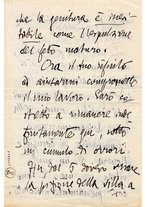 che la genitura è inevi-
tabile come l'espulsione
del feto maturo.
Ora il tuo rifiuto
di aiutarmi compromette
il mio lavoro. Sarò co
stretto a rimanere
qui, sotto
un cumulo di orrori
dovevo
la della villa a